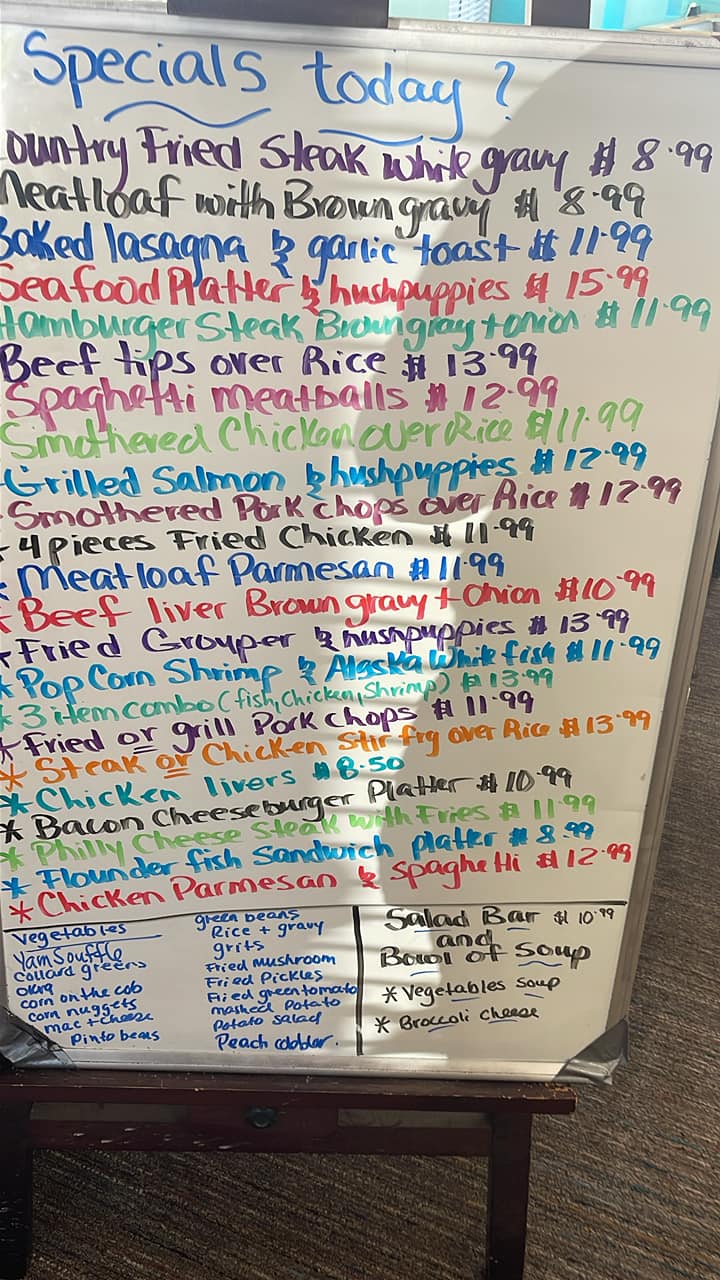 Specials today ?
ountry Fried Steak white gravy $ 8.99
Meatloaf with Brown gravy $ 8.99
Baked lasagna & garlic toast $ 11.99
Seafood Platter & hushpuppies $ 15.99
Hamburger Steak Brown gravy + onion $ 11.99
Beef tips over Rice $ 13.99
Spaghetti meatballs $ 12.99
Smothered Chicken over Rice $ 11.99
Grilled Salmon & hushpuppies $ 12.99
Smothered Pork chops over Rice $ 12.99
4 pieces Fried Chicken $ 11.99
* Meatloaf Parmesan $ 11.99
* Beef liver Brown gravy + Onion $10.99
* Fried Grouper & hushpuppies $ 13.99
* Pop Corn Shrimp & Alaska White fish $ 11.99
* 3 item combo (fish, Chicken, Shrimp) $ 13.99
* Fried or grill Pork chops $ 11.99
* Steak or Chicken Stir fry over Rice $ 13.99
* Chicken livers $ 8.50
* Bacon Cheeseburger Platter $ 10.99
* Philly Cheese Steak with Fries $ 11.99
* Flounder fish Sandwich platter $ 8.99
* Chicken Parmesan & spaghetti $ 12.99
Vegetables
Yam Souffle
collard greens
okra
corn on the cob
corn nuggets
mac + cheese
Pinto beans
green beans
Rice + gravy
grits
Fried Mushroom
Fried Pickles
Fried green tomato
mashed Potato
Potato salad
Peach cobbler.
Salad Bar $ 10.99
and
Bowl of Soup
* Vegetables soup
* Broccoli cheese